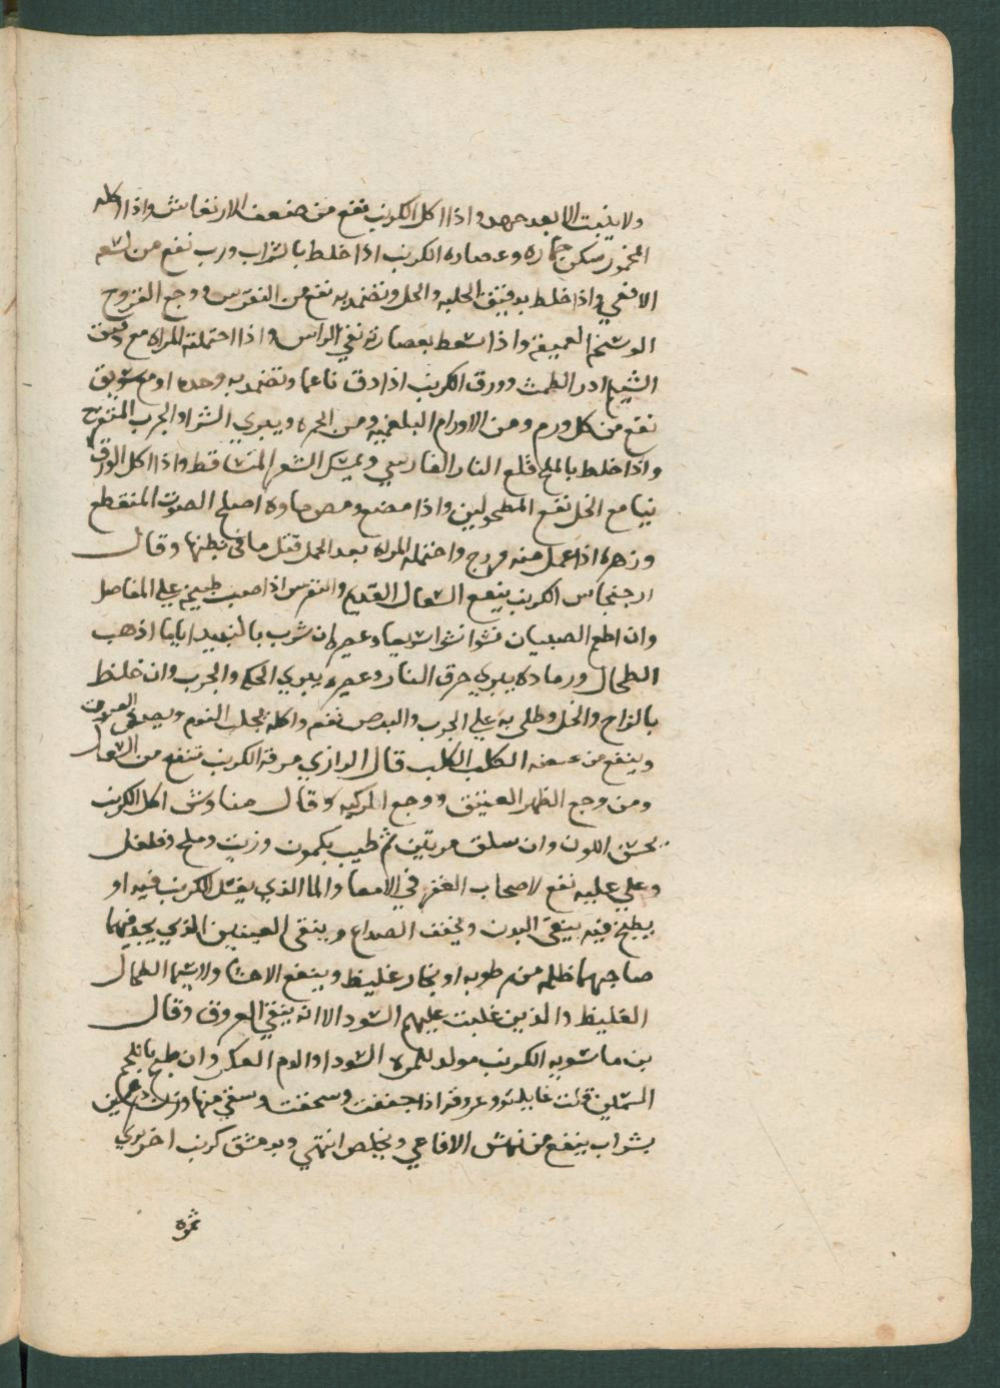 ولا ينبت الا بعد جهد واذا اكل الكرنب نفع من ضعف الارتعاش واذا اكله
المخمور سكن خماره وعصاره الكرنب اذا خلط بالشراب وشرب نفع من لسعه
الافعي واذا خلط بدقيق الحلبه والخل وتضمد به نفع من النقرس ووجع القروح
الوسخه العميقه واذا سعط بعصارته نقي الراس واذا احتملته المراه مع دقيق
الشيلم ادر الطمث وورق الكرنب اذا دق ناعما وتضمد به وحده او مع سويق
نفع من كل ورم ومن الاورام البلغميه ومن الحمره ويبري الشرا والجرب المتقرح
واذا خلط بالملح قلع النار الفارسي ويمسك الشعر المتساقط واذا اكل الورق
نيا مع الخل نفع المطحولين واذا مضغ ومص ماوه اصلح الصوت المنقطع
وزهره اذا عمل منه فرزج واحتملته المراه بعد الحمل قتل ما في بطنها وقال
ارجنجاس الكرنب ينفع السعال القديم والنقرس اذا صب طبيخه علي المفاصل
وان اطعم الصبيان نشوا نشوا سريعا وعصيره ان شرب بالنبيد اياما اذهب
الطحال ورماده يبري حرق النار وعصيره يبري الحكه والجرب وان خلط
بالزاج والخل وطلي به علي الجرب والبرص نفع واكله يجلب النوم ويصفي الصوت
وينفع من عضه الكلب الكلب قال الرازي مرقه الكرنب تنفع من السعال
ومن وجع الظهر العتيق ووجع الركبه وقال اكل الكرنب
يحسن اللون وان سلق مرتين ثم طيب بكمون وزيت وملح وفلفل
وعلي عليه نفع لاصحاب في الامعا والما الذي يغسل الكرنب فيه او
يطبخ فيه ينقي البدن ويخفف الصداع وينقي العينين الذي يجد فيهما
صاحبهما ظلمه من رطوبه او بخار غليظ وينفع الاحشا ولا سيما الطحال
الغليظ والذين غلبت عليهم السودا لانه ينقي العروق وقال
بن ماسويه الكرنب مولد للمره السودا والدم العكر وان طبخ باللحم
السمين قلت غايلته وعروقه اذا جففت وسحقت وسقي منها وزن درهمين
بشراب ينفع من نهش الافاعي ويخلص انتهي وبدمشق كرنب اخر بري
ثمره